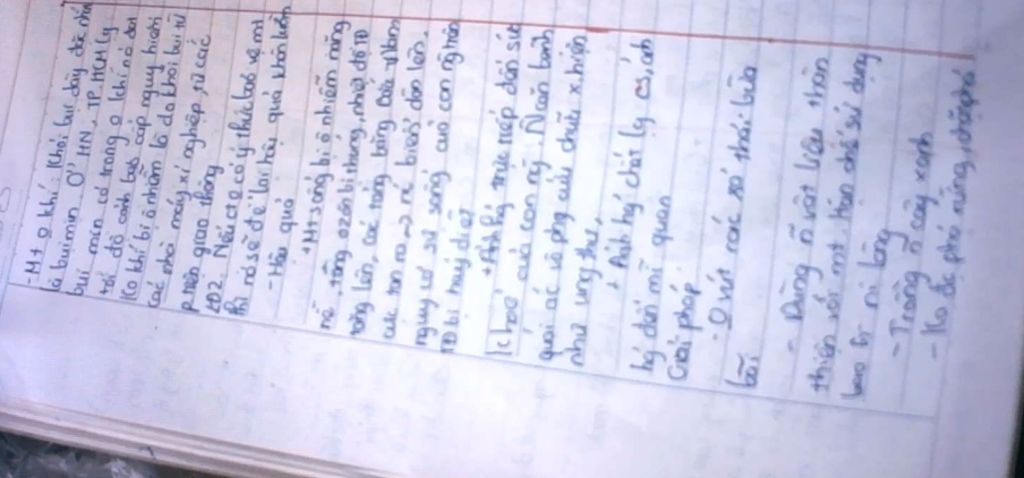 - Mt o khí: Khói bụi dày đặc nhất
là bụi mịn. Ở HN, TP. HCM tỷ
bụi mịn có trong o khí nó đạt
tới độ cảnh báo cấp nguy hiểm
Ko khí bị ô nhiễm là do khói bụi từ
các nhà máy, xí nghiệp, từ các
p. tiện giao thông
LĐ2: Nếu cta ko có ý thức bảo vệ mt
thì nó sẽ để lại hậu quả khôn lường
- Hậu quả
+ Mt sống bị ô nhiễm nặng
nề, tầng ozôn bị thủng, nhiệt độ TĐ
nóng lên, các tảng băng ở Bắc và Nam
cực tan ra → nc biển dâng lên,
nguy cơ sự sống của con ng trên
TĐ bị huỷ diệt
+ Ảnh hg trực tiếp đến sức
khoẻ của con ng. Ñ căn bệnh
quái ác vô phg cứu chữa x.hiện
như ung thư,
+ Ảnh hg chất lg cs, ảnh
hg đến mĩ quan
Giải pháp
- O vứt rác, xả thải bừa
bãi
- Dùng ñ vật liệu thân
thiện với mt, hạn chế sử dụng
bao bì ni lông
- Trồng ñ cây xanh
- Ko đc phá rừng, chặt phá